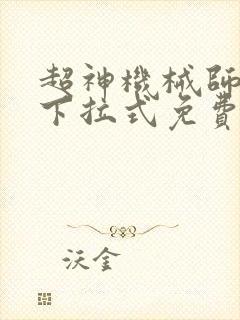 超神機械師
下拉式免費
沃金